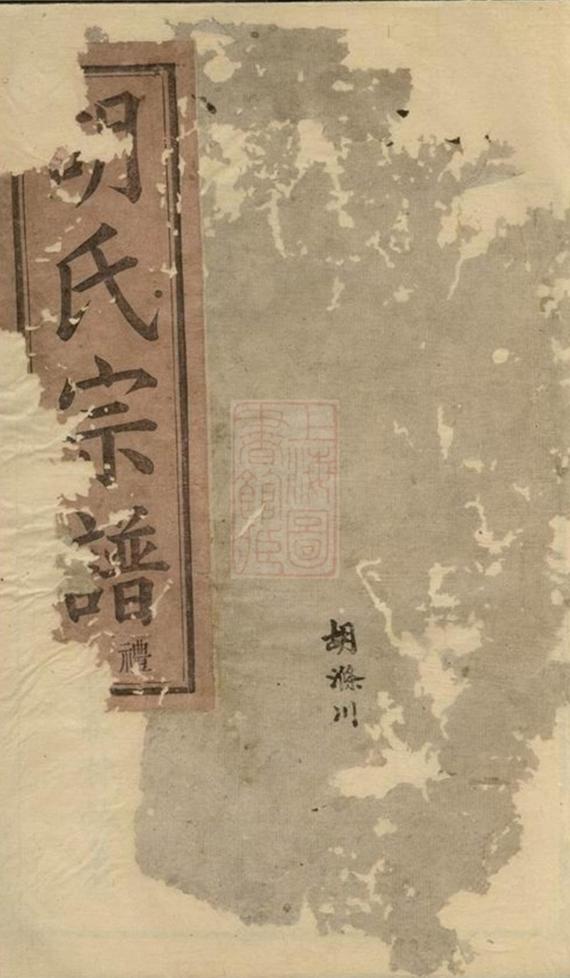 胡氏宗譜
禮
上海圖
書館藏
胡滌川